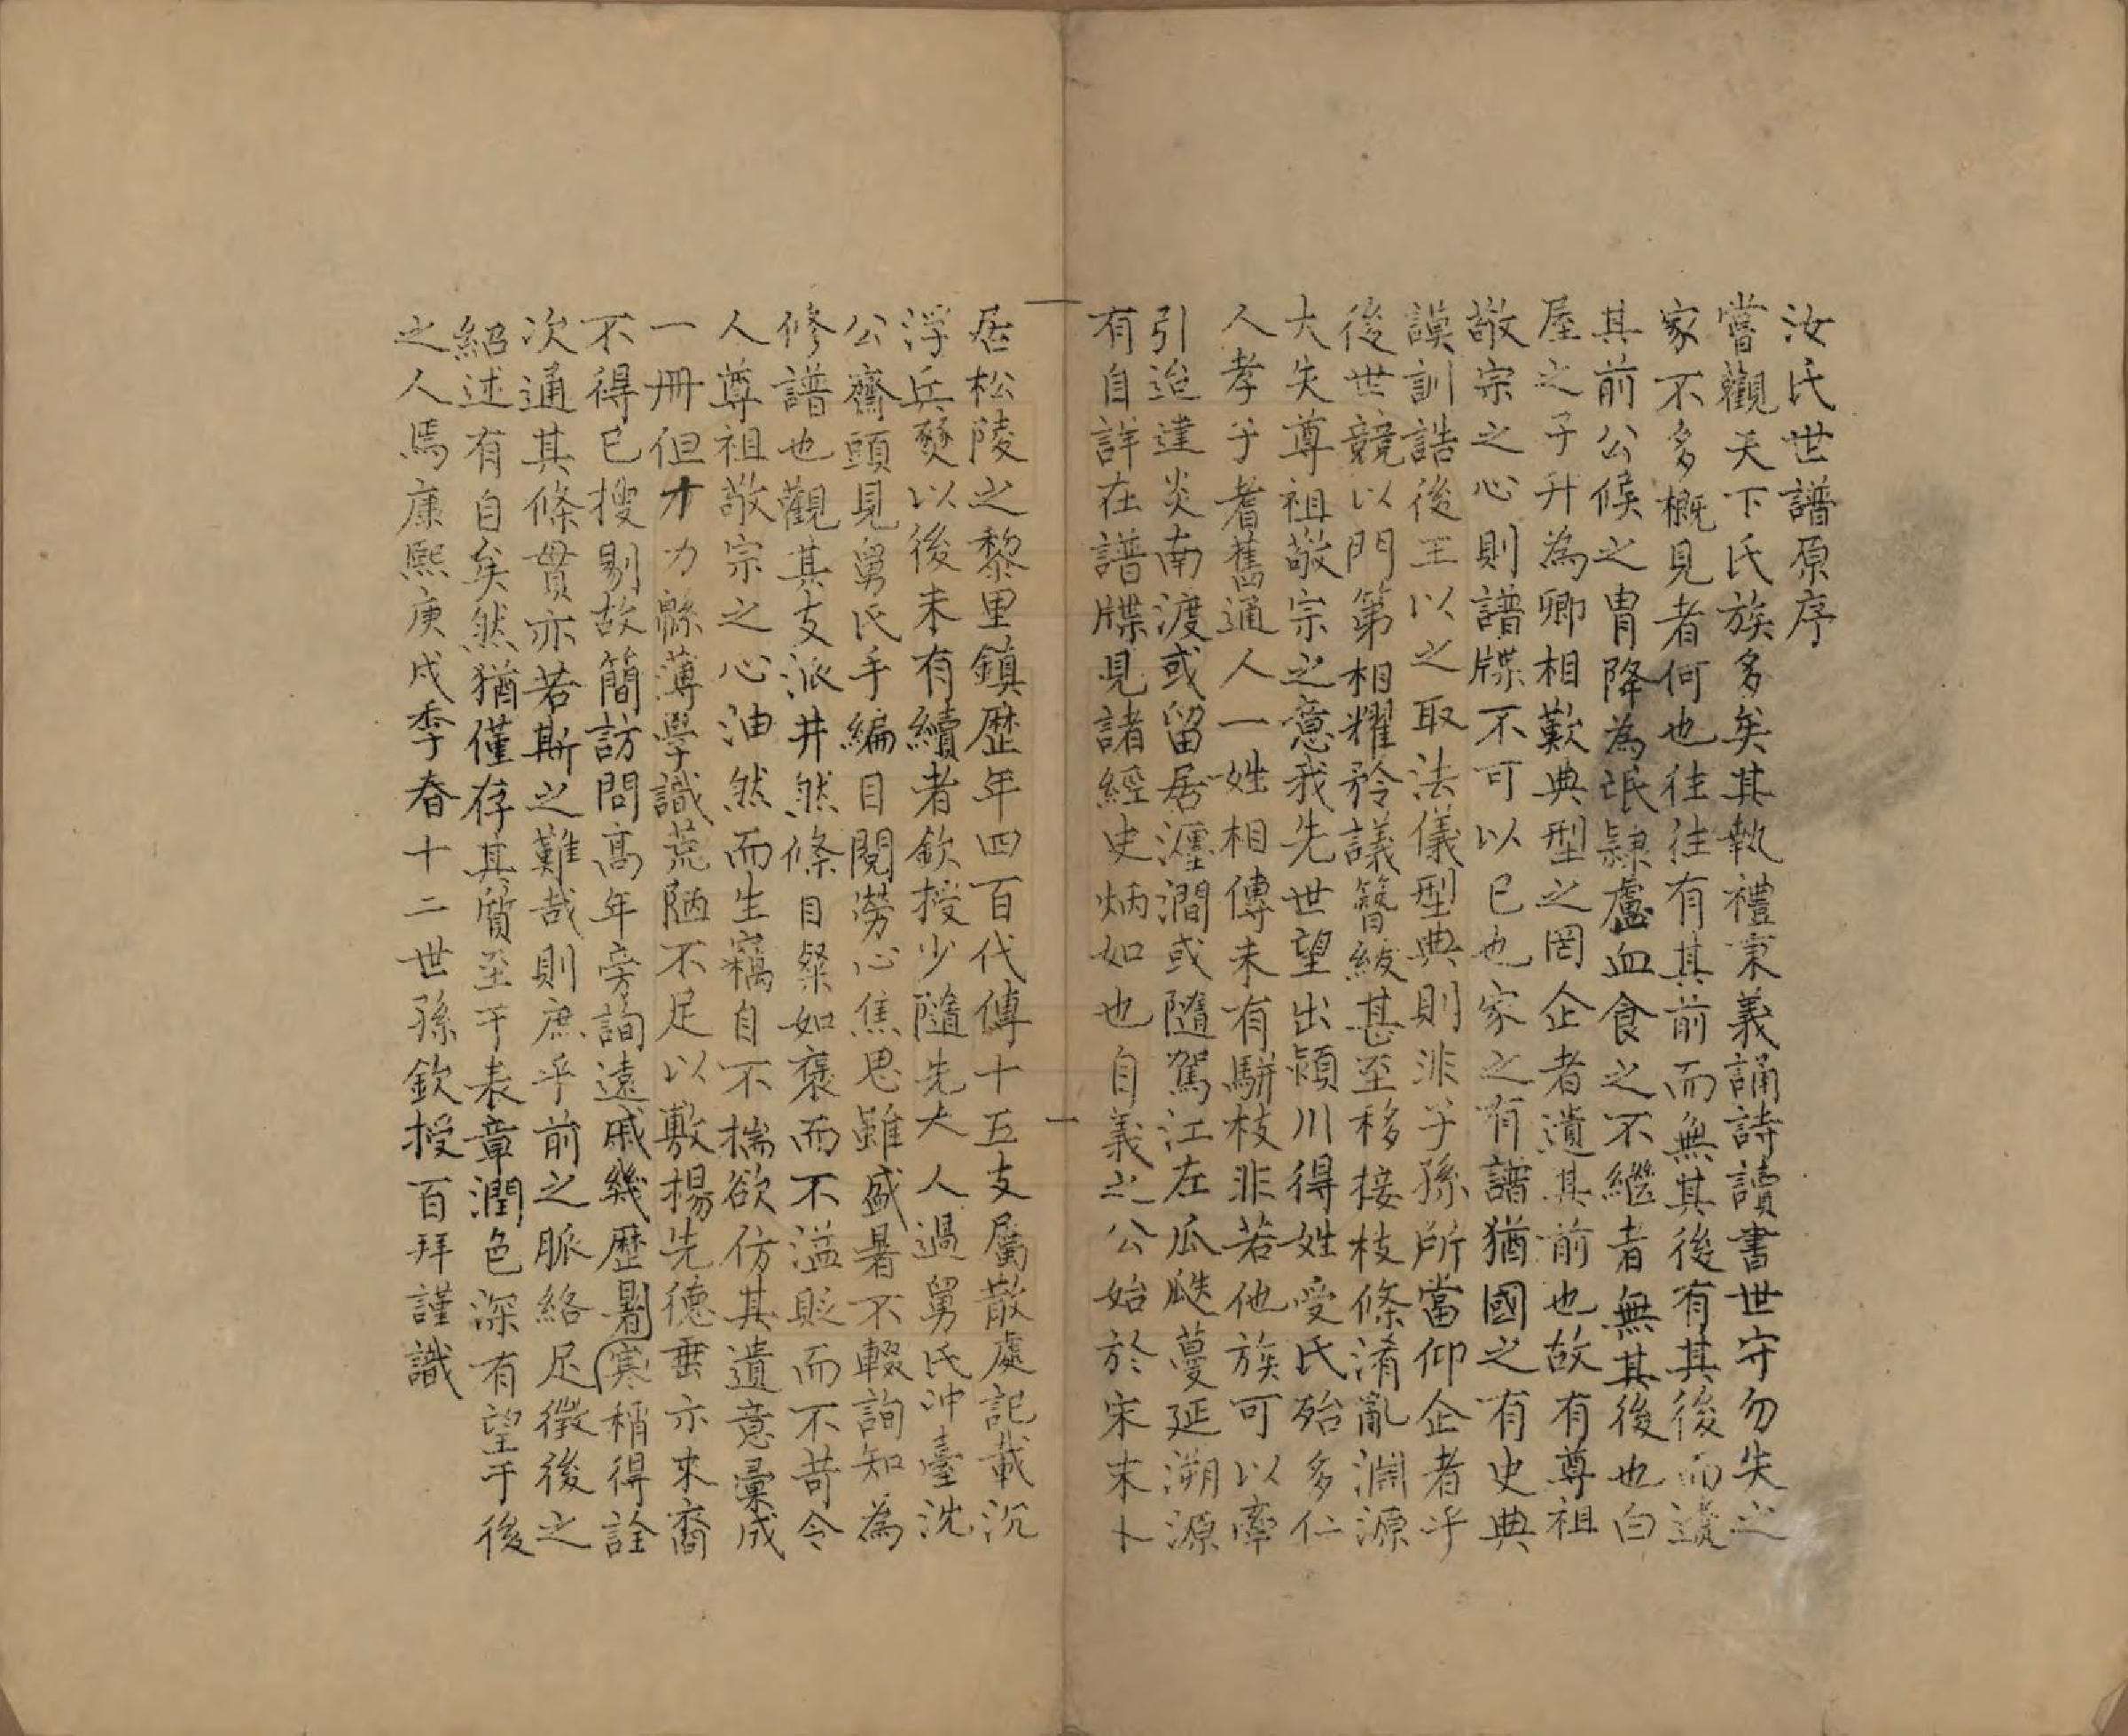 汝氏世譜原序
嘗觀天下氏族多矣其執禮秉義誦詩讀書世守勿失之
家不多概見者何也往往有其前而無其後有其後而遺
其前公侯之冑降為氓隸廬血食之不繼者無其後也白
屋之子升為卿相歎典型之罔企者遺其前也故有尊祖
敬宗之心則譜牒不可以已也家之有譜猶國之有史典
謨訓誥後王以之取法儀型典則非子孫所當仰企者乎
後世競以門第相耀矜議簪紱甚至移接枝條淆亂淵源
大失尊祖敬宗之意我先世望出潁川得姓受氏殆多仁
人孝子耆舊通人一姓相傳未有駢枝非若他族可以牽
引迨建炎南渡或留居瀍澗或隨駕江左瓜瓞蔓延溯源
有自詳在譜牒見諸經史炳如也自義之公始於宋末卜
居松陵之黎里鎮歷年四百代傳十五支屬散處記載沉
浮兵燹以後未有續者欽授少隨先大人過舅氏沖臺沈
公齋頭見舅氏手編目閱勞心焦思雖盛暑不輟詢知為
修譜也觀其支派井然條目粲如褒而不溢貶而不苛令
人尊祖敬宗之心油然而生竊自不揣欲仿其遺意彙成
一冊但才力緜薄學識荒陋不足以敷揚先德垂示來裔
不得已搜剔故簡訪問高年旁詢遠戚幾歷暑寒稍得詮
次通其條貫亦若斯之難哉則庶乎前之脈絡足徵後之
紹述有自矣然猶僅存其質至于表章潤色深有望于後
之人焉康熙庚戌季春十二世孫欽授百拜謹識